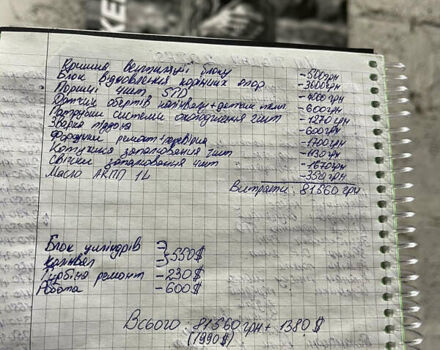 KE
Кришка вентиляції блоку -500грн
Блок відновлення корінних опор -3600грн
Поршні 4шт. STD -4000грн
Датчик обертів колінвалу+датчик тиску -600грн
Патрубки системи охолодження 2шт -1270грн
Зварка піддона -600грн
Форсунки ремонт+перевірка -1700грн
Котушка запалювання 1шт -1130грн
Свічки запалювання 4шт -1670грн
Масло АКПП 1L -350грн
Витрати: 81560 грн.
Блок циліндрів
Колінвал -550$
Турбіна ремонт -230$
Робота -600$
Всього: 81560грн+ 1380$
(1990$)